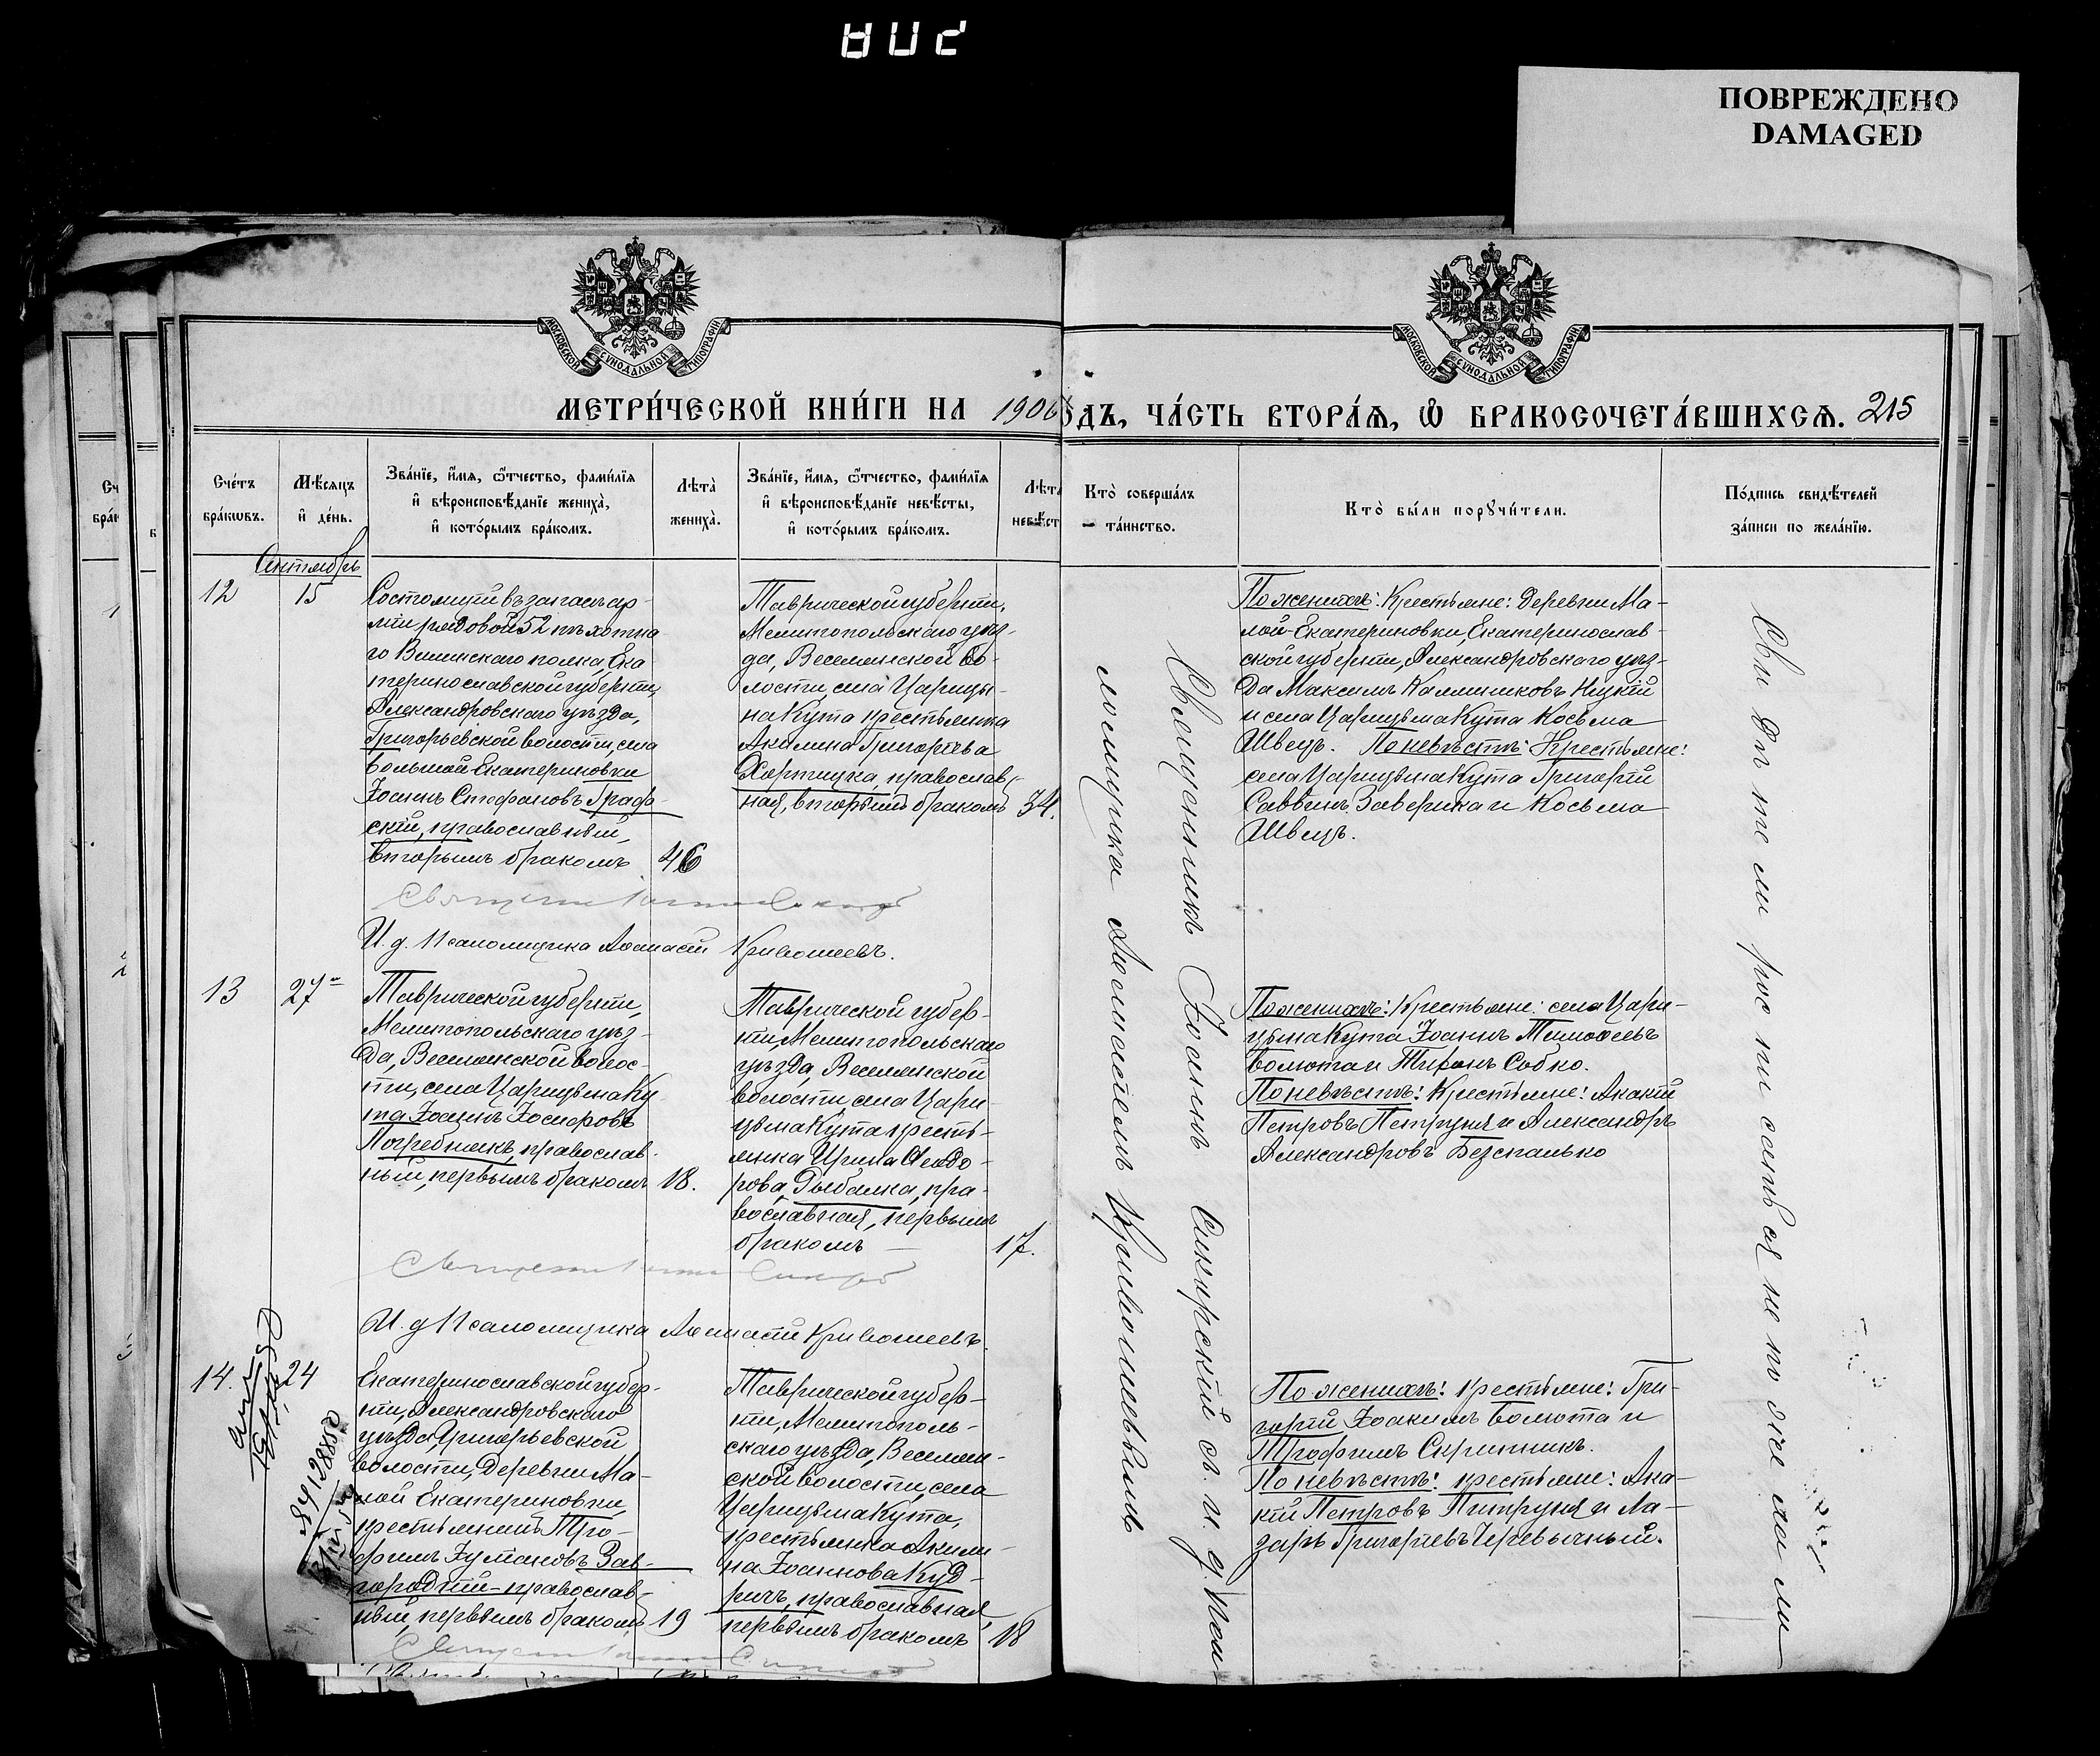 ПОВРЕЖДЕНО
DAMAGED
МОСКОВСКОЙ СѴНОДАЛЬНОЙ ТИПОГРАФІИ
МОСКОВСКОЙ СѴНОДАЛЬНОЙ ТИПОГРАФІИ
МЕТРИ́ЧЕСКОЙ КНИ́ГИ НА 1906
ОДЪ, ЧА́СТЬ ВТОРА́Ѧ, Ѽ БРАКОСОЧЕТА́ВШИХСѦ. 215
Сче́тъ
бра́кѡвъ.
Мѣ́сѧцъ
и҆ де́нь.
Зва́нїе, и҆́мѧ, ѻ҆́тчество, фами́лїѧ
и҆ вѣроисповѣ́данїе жениха̀,
и҆ кото́рымъ бра́комъ.
Лѣта̀
жениха̀.
Зва́нїе, и҆́мѧ, ѻ҆́тчество, фами́лїѧ
и҆ вѣроисповѣ́данїе невѣ́сты,
и҆ кото́рымъ бра́комъ.
Лѣта
невѣст
Кто̀ соверша́лъ
та́инство.
Кто̀ бы́ли порꙋчи́тели.
По́дпись свидѣ́телей
за́писи по жела́нїю.
Сентябрь
12
15
Состоящій въ запасѣ ар-
міи рядовой 52 пѣхотна
го Виленскаго полка, Ека
теринославской губерніи
Александровскаго уѣзда,
Григорьевской волости, села
Большой Екатериновки
Іоаннъ Стефановъ Граф-
скій, православный,
вторымъ бракомъ
46
Таврической губерніи,
Мелитопольскаго уѣз-
да, Веселянской во-
лости, села Царицы-
на Кута крестьянка
Акилина Григоріева
Хортицка, православ-
ная, вторымъ бракомъ
34.
По женихѣ: Крестьяне: деревни Ма-
лой-Екатериновки, Екатеринослав-
ской губерніи, Александровскаго уѣз-
да Максимъ Каллиниковъ Ницкій
и села Царицына Кута Косьма
Швецъ. По невѣстѣ: Крестьяне:
села Царицына Кута Григорій
Саввинъ Заверика и Косьма
Швецъ.
И. д. Псаломщика Аѳанасій Кривошеевъ.
13
27
Таврической губерніи,
Мелитопольскаго уѣз-
да, Веселянской волос-
ти, села Царицына Ку
та Іоаннъ Іосифовъ
Погребнякъ, православ-
ный, первымъ бракомъ
18.
Таврической губер-
ніи Мелитопольскаго
уѣзда, Веселянской
волости села Цари-
цына Кута кресть-
янка Ирина Ѳеодо-
рова, Рыбалка, пра-
вославная, первымъ
бракомъ
17.
По женихѣ: Крестьяне: села Цари-
цына Кута Іоаннъ Тимоѳеевъ
Болюта и Тихонъ Собко.
По невѣстѣ: Крестьяне: Акакій
Петровъ Петруня и Александръ
Александровъ Безпалько
И. д. Псаломщика Аѳанасій Кривошеевъ.
14.
24
Екатеринославской губер-
ніи, Александровскаго
уѣзда, Григорьевской
волости, деревни Ма-
лой Екатериновки,
крестьянинъ Тро-
фимъ Зав-
городній-православ-
ный, первымъ бракомъ
19
Таврической губер-
ніи, Мелитополь-
скаго уѣзда, Веселян-
ской волости, села
Царицына Кута,
крестьянка Акили-
на Іоаннова Куд-
ричъ, православная,
первымъ бракомъ
18
По женихѣ: Крестьяне: Гри-
горій Іоакимъ Болюта и
Трофимъ Скрипникъ.
По невѣстѣ: крестьяне: Ака-
кій Петровъ Питруня и Ла-
зарь Григоріевъ Черевычный.
Священникъ Іоаннъ Сикирскій съ и. д. псал-
ломщика Аѳанасіемъ Кривошеевымъ
Свидѣтели росписаться не пожелали